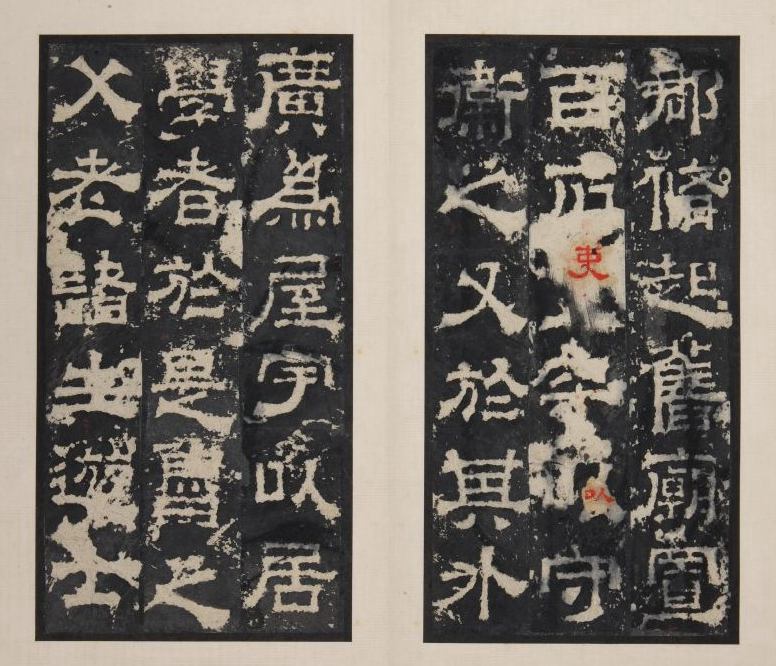 郡脩起舊廟置
百石吏卒以守
衛之又於其外
廣為屋宇以居
學者於是魯之
父老諸生遊士